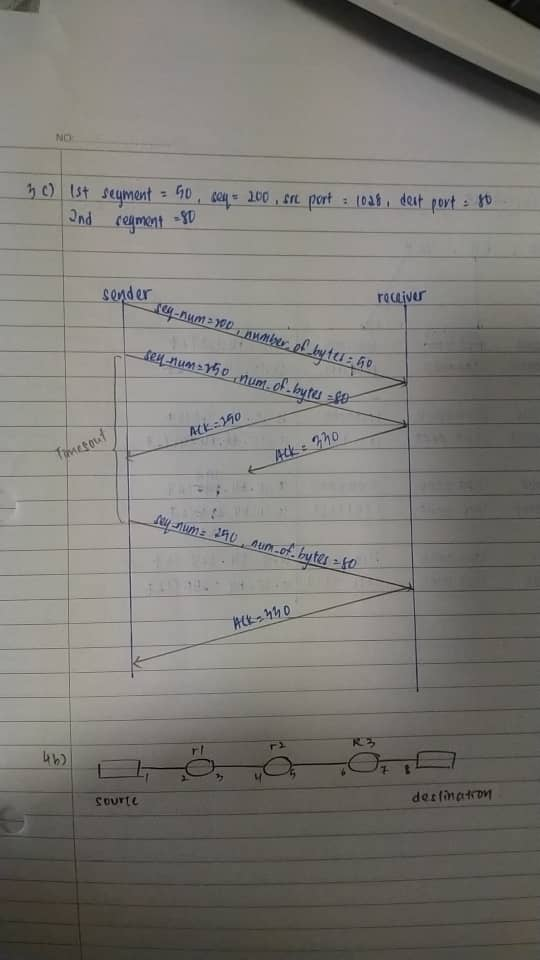 NO:
3 c) 1st segment = 50, seq = 200, src port = 1028, dest port = 80
2nd segment = 80
sender receiver
seq-num=200, number_of_bytes=50
seq-num=250, num_of_bytes=80
Timesout
ACK=250
ACK=330
seq-num=250, num_of_bytes=80
ACK=330
4b)
r1 r2 R3
1 2 3 4 5 6 7 8
source destination